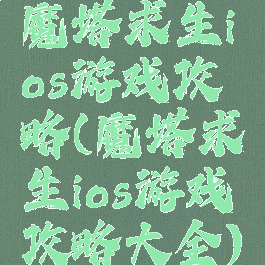 魔塔求生i
os游戏攻
略(魔塔求
生ios游戏
攻略大全)